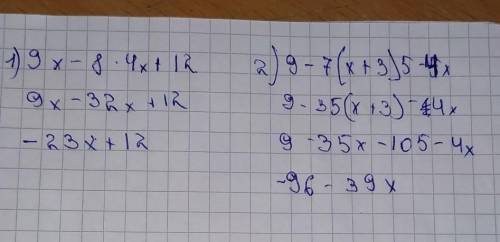 1) 9x - 8 · 4x + 12
9x - 32x + 12
- 23x + 12
2) 9 - 7(x+3)5 - 4x
9 - 35(x+3) - 4x
9 - 35x - 105 - 4x
-96 - 39x